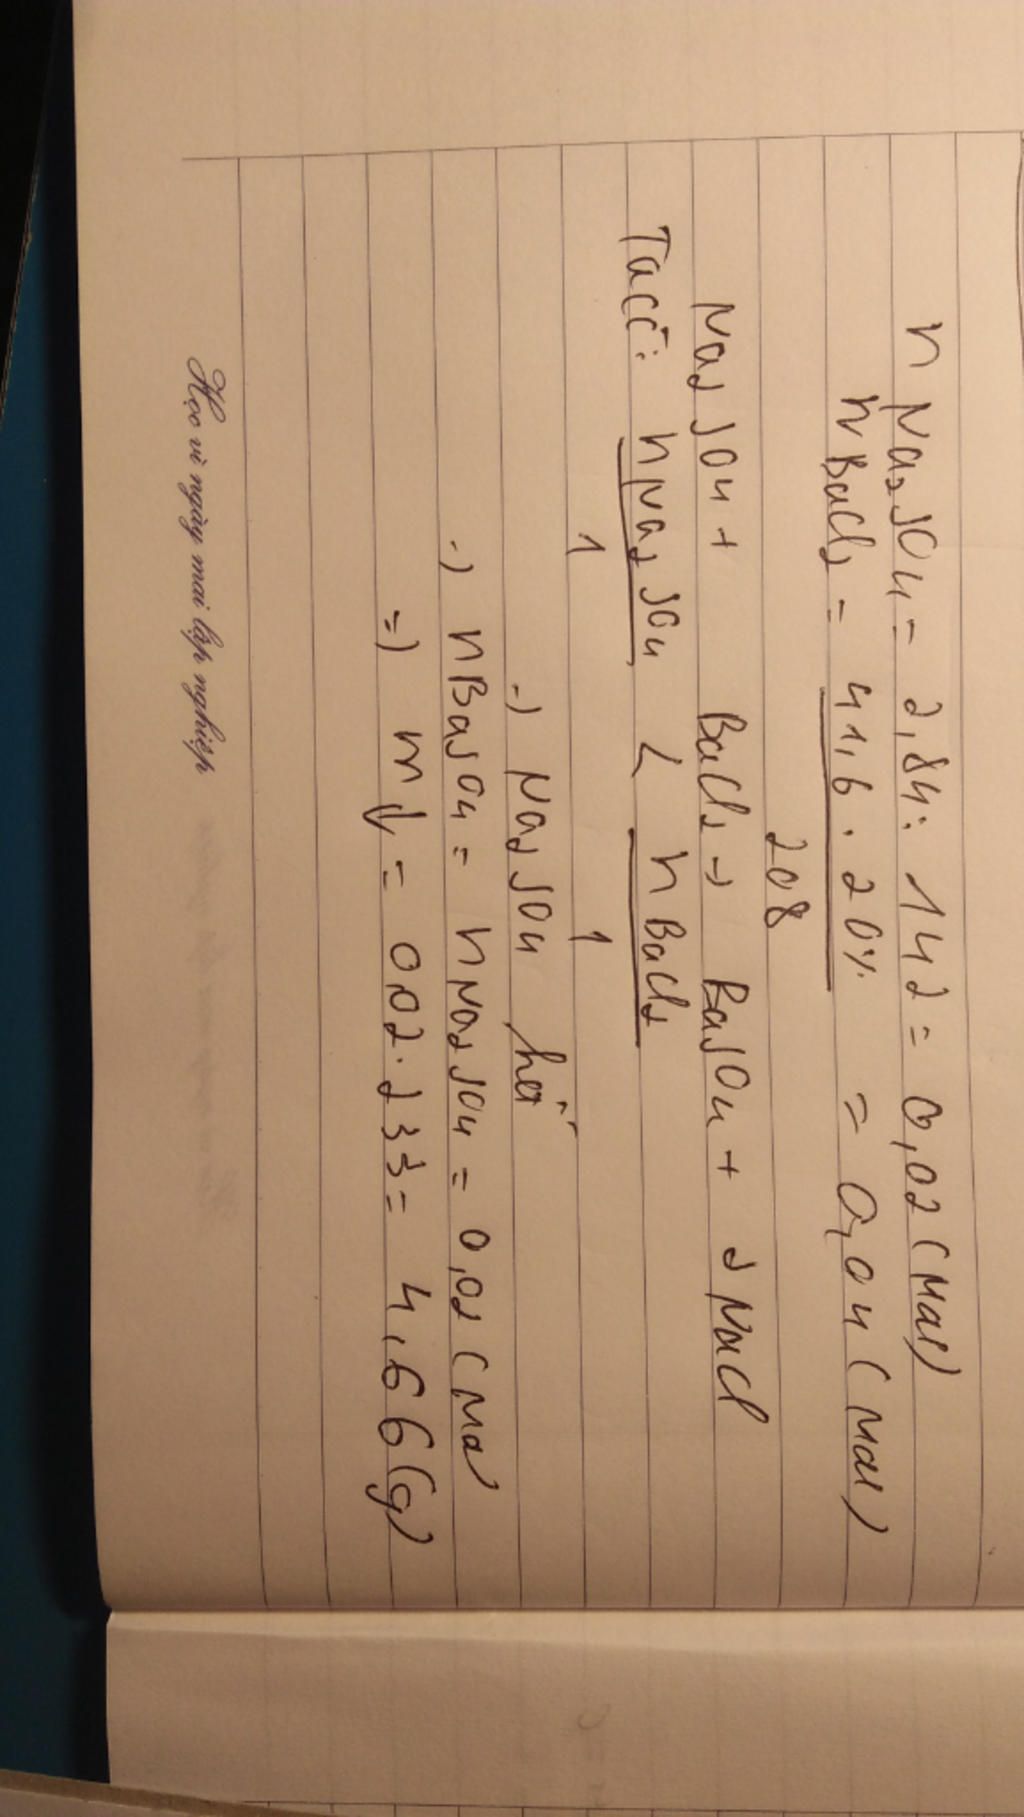 n Na2SO4 = 2,84 : 142 = 0,02 (mol)
n BaCl2 = 41,6 . 20% = 0,04 (mol)
208
Na2SO4 + BaCl2 → BaSO4 + 2NaCl
Ta có: n Na2SO4 < n BaCl2
1 1
→) Na2SO4 hết
→) n BaSO4 = n Na2SO4 = 0,02 (mol
=) m↓ = 0.02 . 233 = 4,66 (g)
Học vì ngày mai lập nghiệp